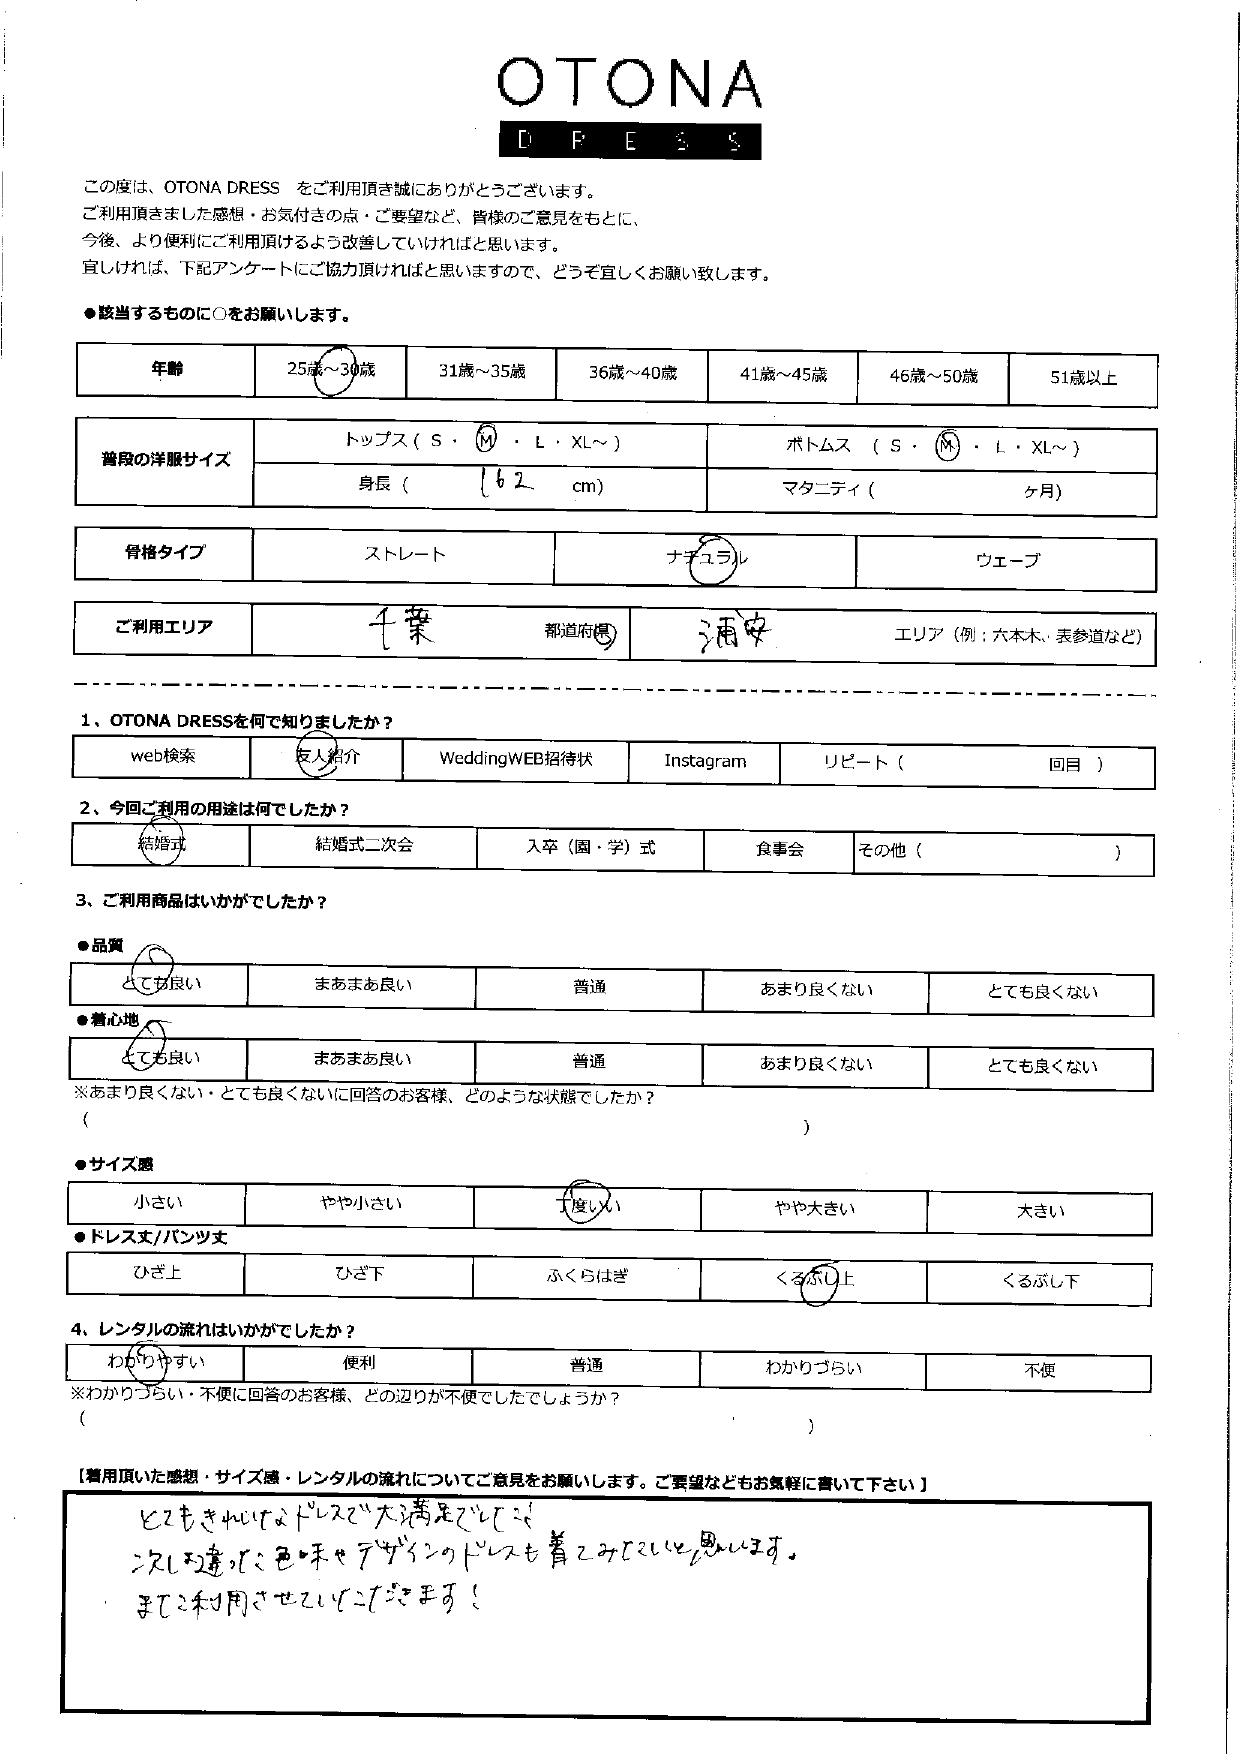 OTONA
DRESS
この度は、OTONA DRESS をご利用頂き誠にありがとうございます。
ご利用頂きました感想・お気付きの点・ご要望など、皆様のご意見をもとに、
今後、より便利にご利用頂けるよう改善していければと思います。
宜しければ、下記アンケートにご協力頂ければと思いますので、どうぞ宜しくお願い致します。
●該当するものに○をお願いします。
年齢 25歳～30歳 31歳～35歳 36歳～40歳 41歳～45歳 46歳～50歳 51歳以上
普段の洋服サイズ トップス ( S ・ M ・ L ・ XL～ ) ボトムス ( S ・ M ・ L ・ XL～ )
身長 ( 162 cm) マタニティ ( ヶ月)
骨格タイプ ストレート ナチュラル ウェーブ
ご利用エリア 千葉 都道府県 浦安 エリア（例；六本木、表参道など）
1、OTONA DRESSを何で知りましたか？
web検索 友人紹介 WeddingWEB招待状 Instagram リピート（ 回目 ）
2、今回ご利用の用途は何でしたか？
結婚式 結婚式二次会 入卒（園・学）式 食事会 その他（ ）
3、ご利用商品はいかがでしたか？
●品質
とても良い まあまあ良い 普通 あまり良くない とても良くない
●着心地
とても良い まあまあ良い 普通 あまり良くない とても良くない
※あまり良くない・とても良くないに回答のお客様、どのような状態でしたか？
( )
●サイズ感
小さい やや小さい 丁度いい やや大きい 大きい
●ドレス丈/パンツ丈
ひざ上 ひざ下 ふくらはぎ くるぶし上 くるぶし下
4、レンタルの流れはいかがでしたか？
わかりやすい 便利 普通 わかりづらい 不便
※わかりづらい・不便に回答のお客様、どの辺りが不便でしたでしょうか？
( )
【着用頂いた感想・サイズ感・レンタルの流れについてご意見をお願いします。ご要望などもお気軽に書いて下さい】
とてもきれいなドレスで大満足でした!
次は違った色味やデザインのドレスも着てみたいと思います。
またご利用させていただきます！